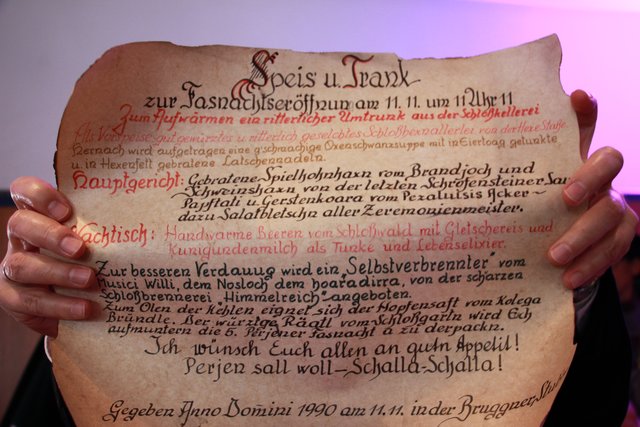 Speis u. Trank
zur Fasnachtseröffnun am 11. 11. um 11 Uhr 11
Zum Aufwärmen ein ritterlicher Umtrunk aus der Schloßkellerei
Als Vorspeise gut gewürztes u. ritterlich geselchtes Schloßhexnallerlei von der Hexe Stase
Hernach wird aufgetragen eine g'schmachige Oxenschwanzsuppe mit in Eiertaag getunkte
u. in Hexenfett gebratene Latschennadeln.
Hauptgericht: Gebratene Spielhohnhaxn vom Brandjoch und
Schweinshaxn, von der letzten Schrofensteiner Sau
Paystati u. Gerstenkoara vom Pezalutsis Acker –
dazu Salatbletschn aller Zeremonienmeister.
Nachtisch: Handwarme Beeren vom Schloßwald mit Gletschereis und
Kunigundenmilch als Tunke und Lebenselixier.
Zur besseren Verdauug wird ein „Selbstverbrennter" vom
Musici Willi, dem Nosloch dem hoaradirra, von der scharzen
Schloßbrennerei "Himmelreich" angeboten.
Zum Ölen der Kehlen eignet sich der Hopfensaft vom Kolega
Bründle. Der würztge Raatl vom Schloßgartn wird Ech
aufmuntern die 5. Perjener Fasnacht a zu derpackn.
Ich wünsch Euch allen an gutn Appetit!
Perjen sall woll – Schalla-Schalla!
Gegeben Anno Domini 1990 am 11. 11. in der Bruggner